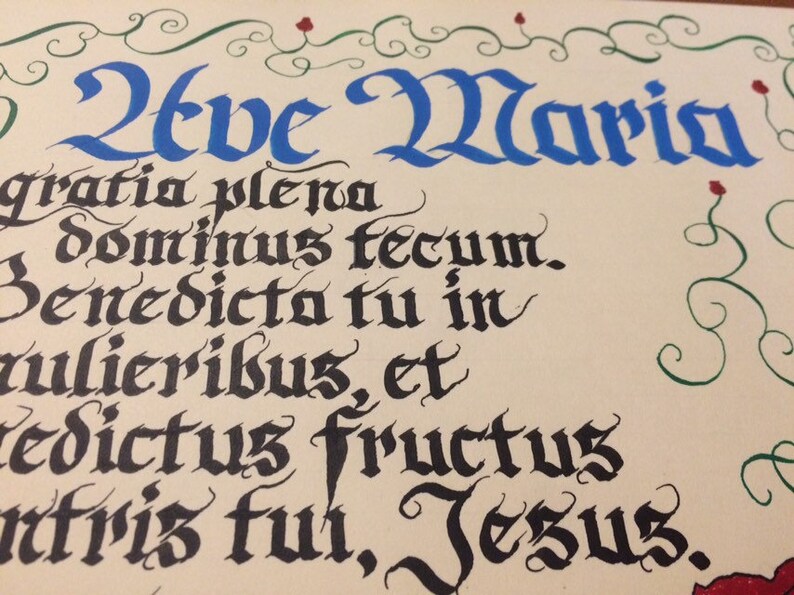 Ave Maria
gratia plena
dominus tecum.
Benedicta tu in
mulieribus, et
nedictus fructus
ntris tui, Jesus.